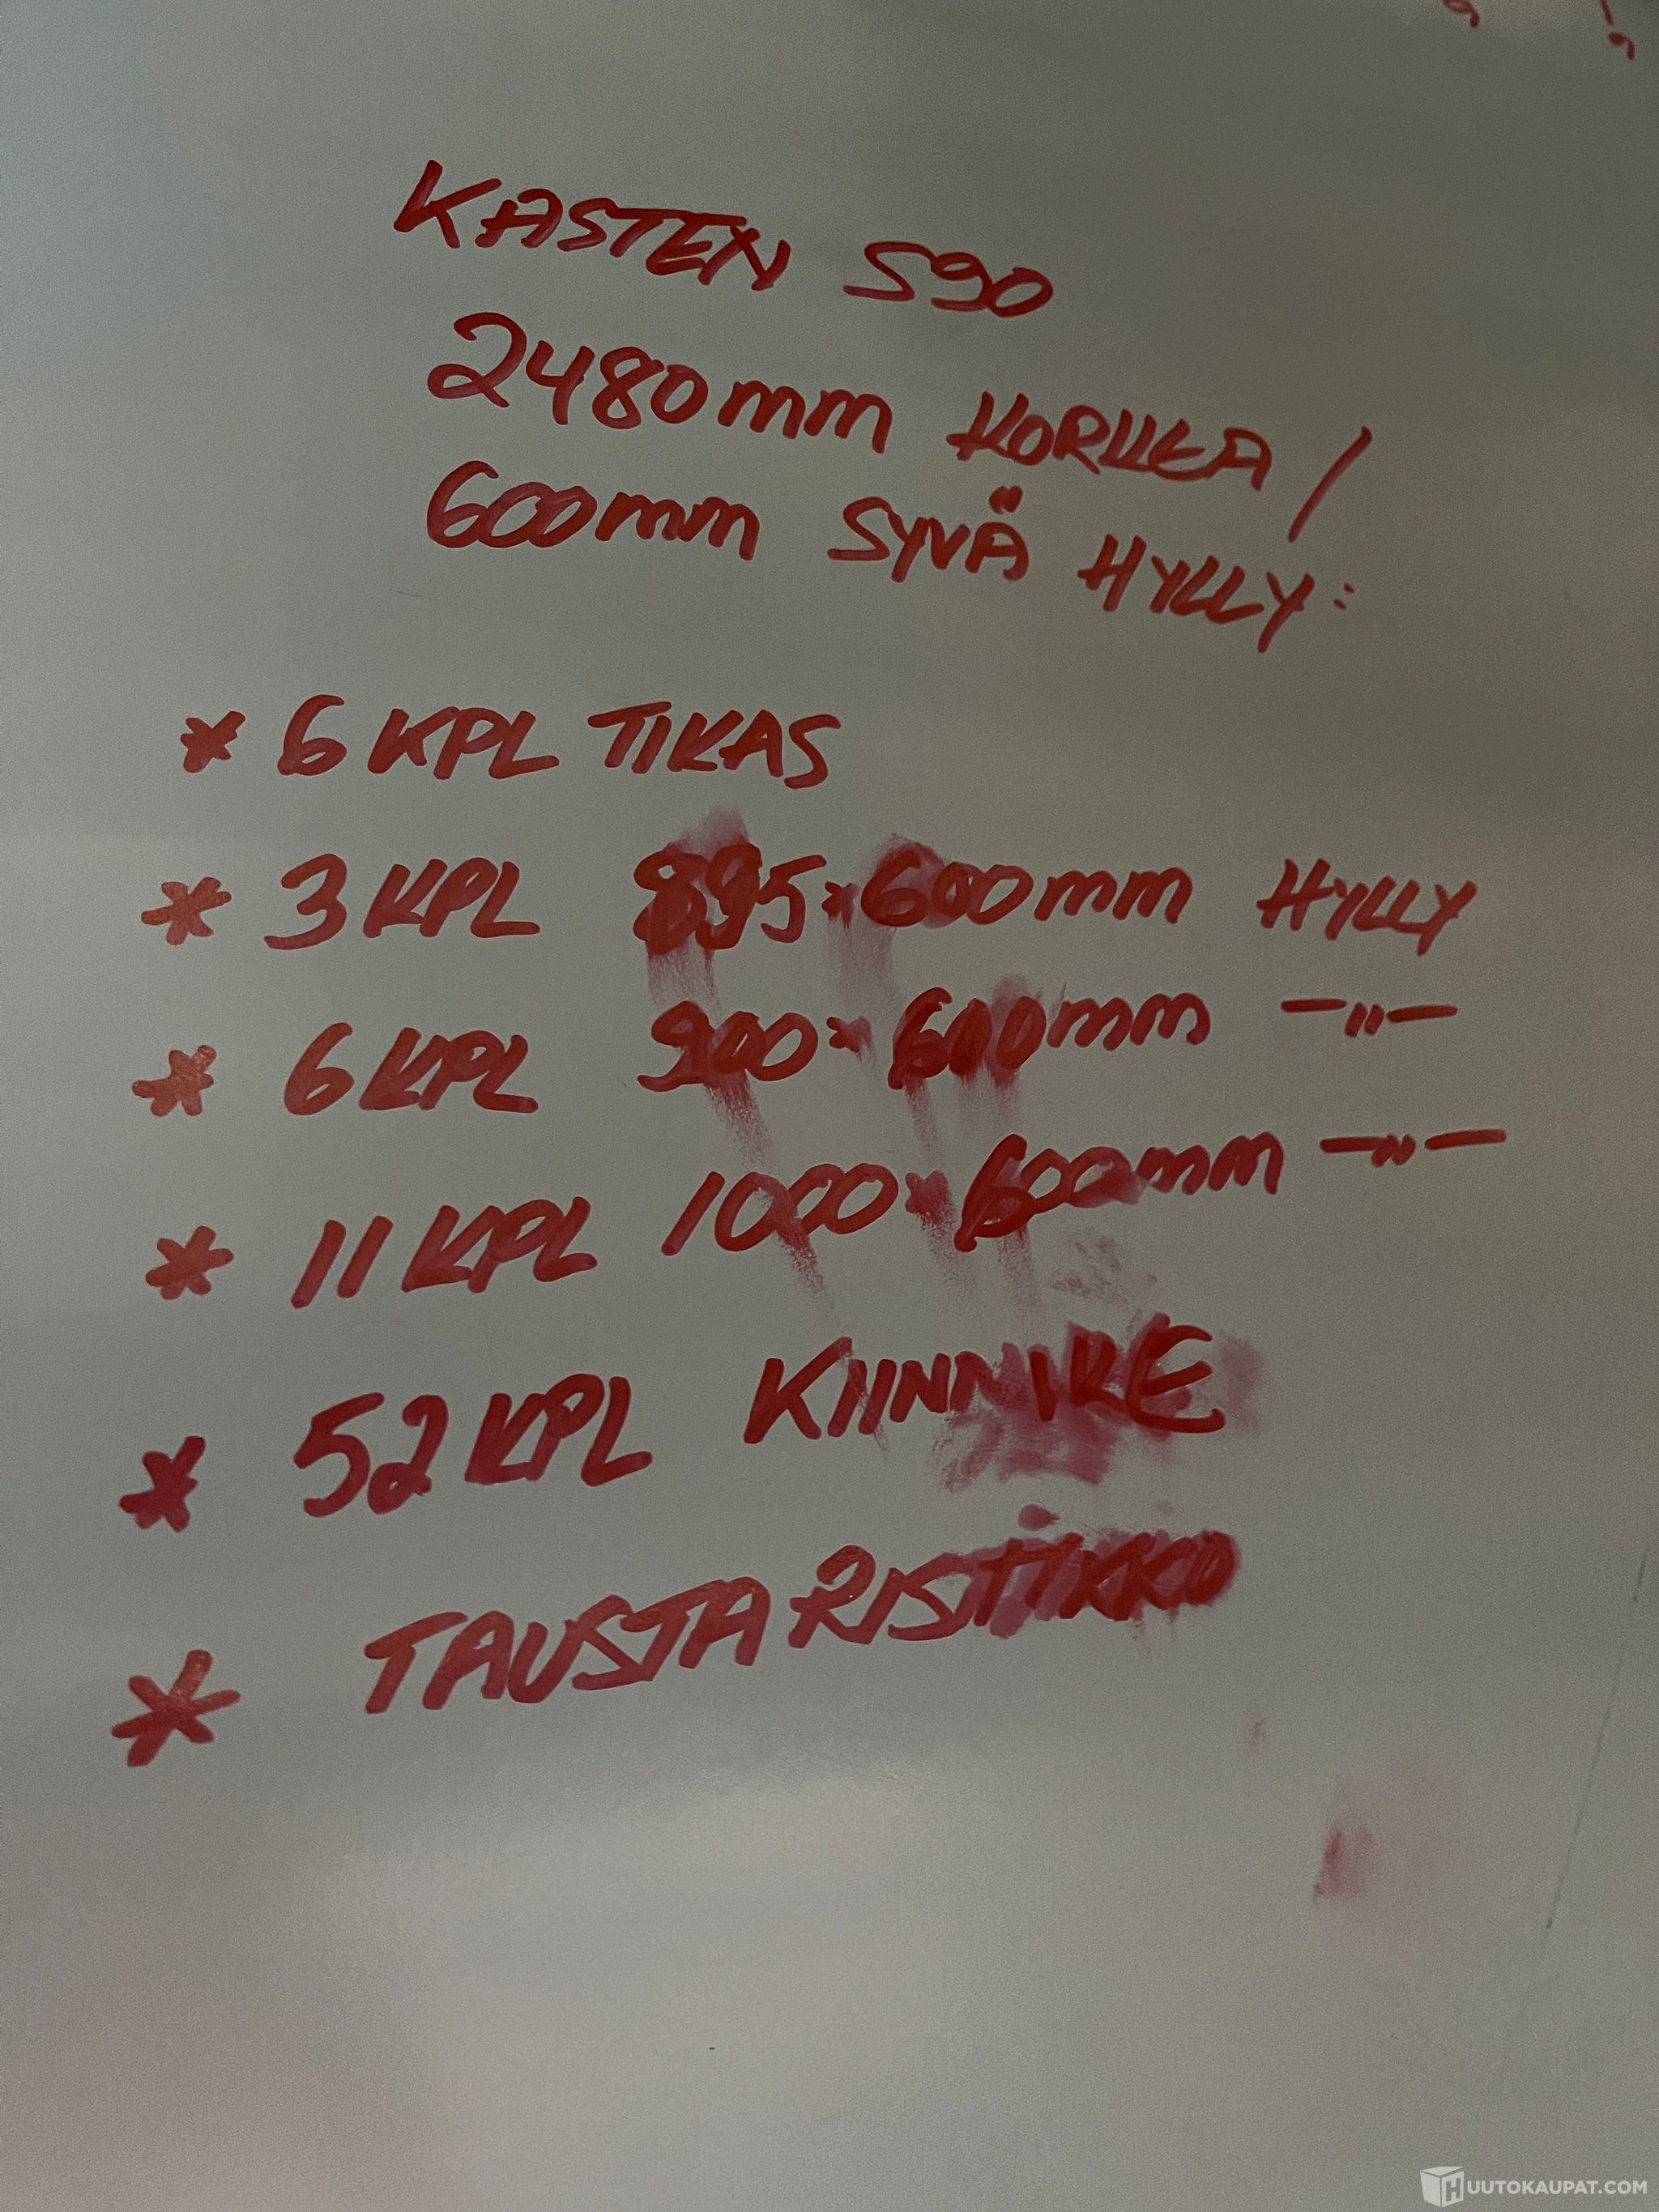 KASTEN S90
2480mm KORKEA /
600mm SYVÄ HYLLY:
* 6 KPL TIKAS
* 3 KPL 895×600mm HYLLY
* 6 KPL 900×600mm —"—
* 11 KPL 1000×600mm —"—
* 52 KPL KIINNIKE
* TAUSTARISTIIKKO
HUUTOKAUPAT.COM